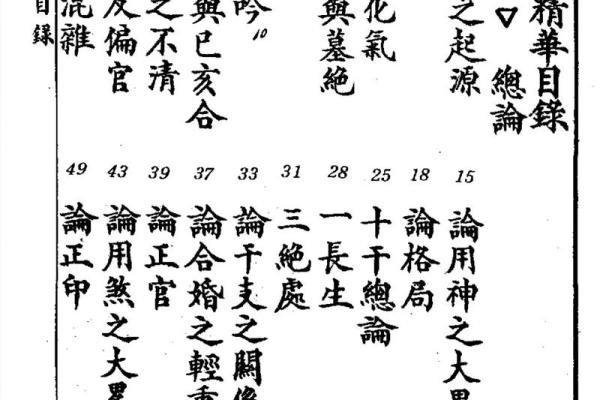 精華目錄
▽ 總論
之起源 15
18
化氣 25
與墓絕 28
31
吟 10 33
與巳亥合 37
之不清 39
及偏官 43
混雜 49
論用神之大
論格局
十干總論
一長生
三絕處
論干支之關係
論合婚之輕重
論正官
論用煞之大
論正印
目錄